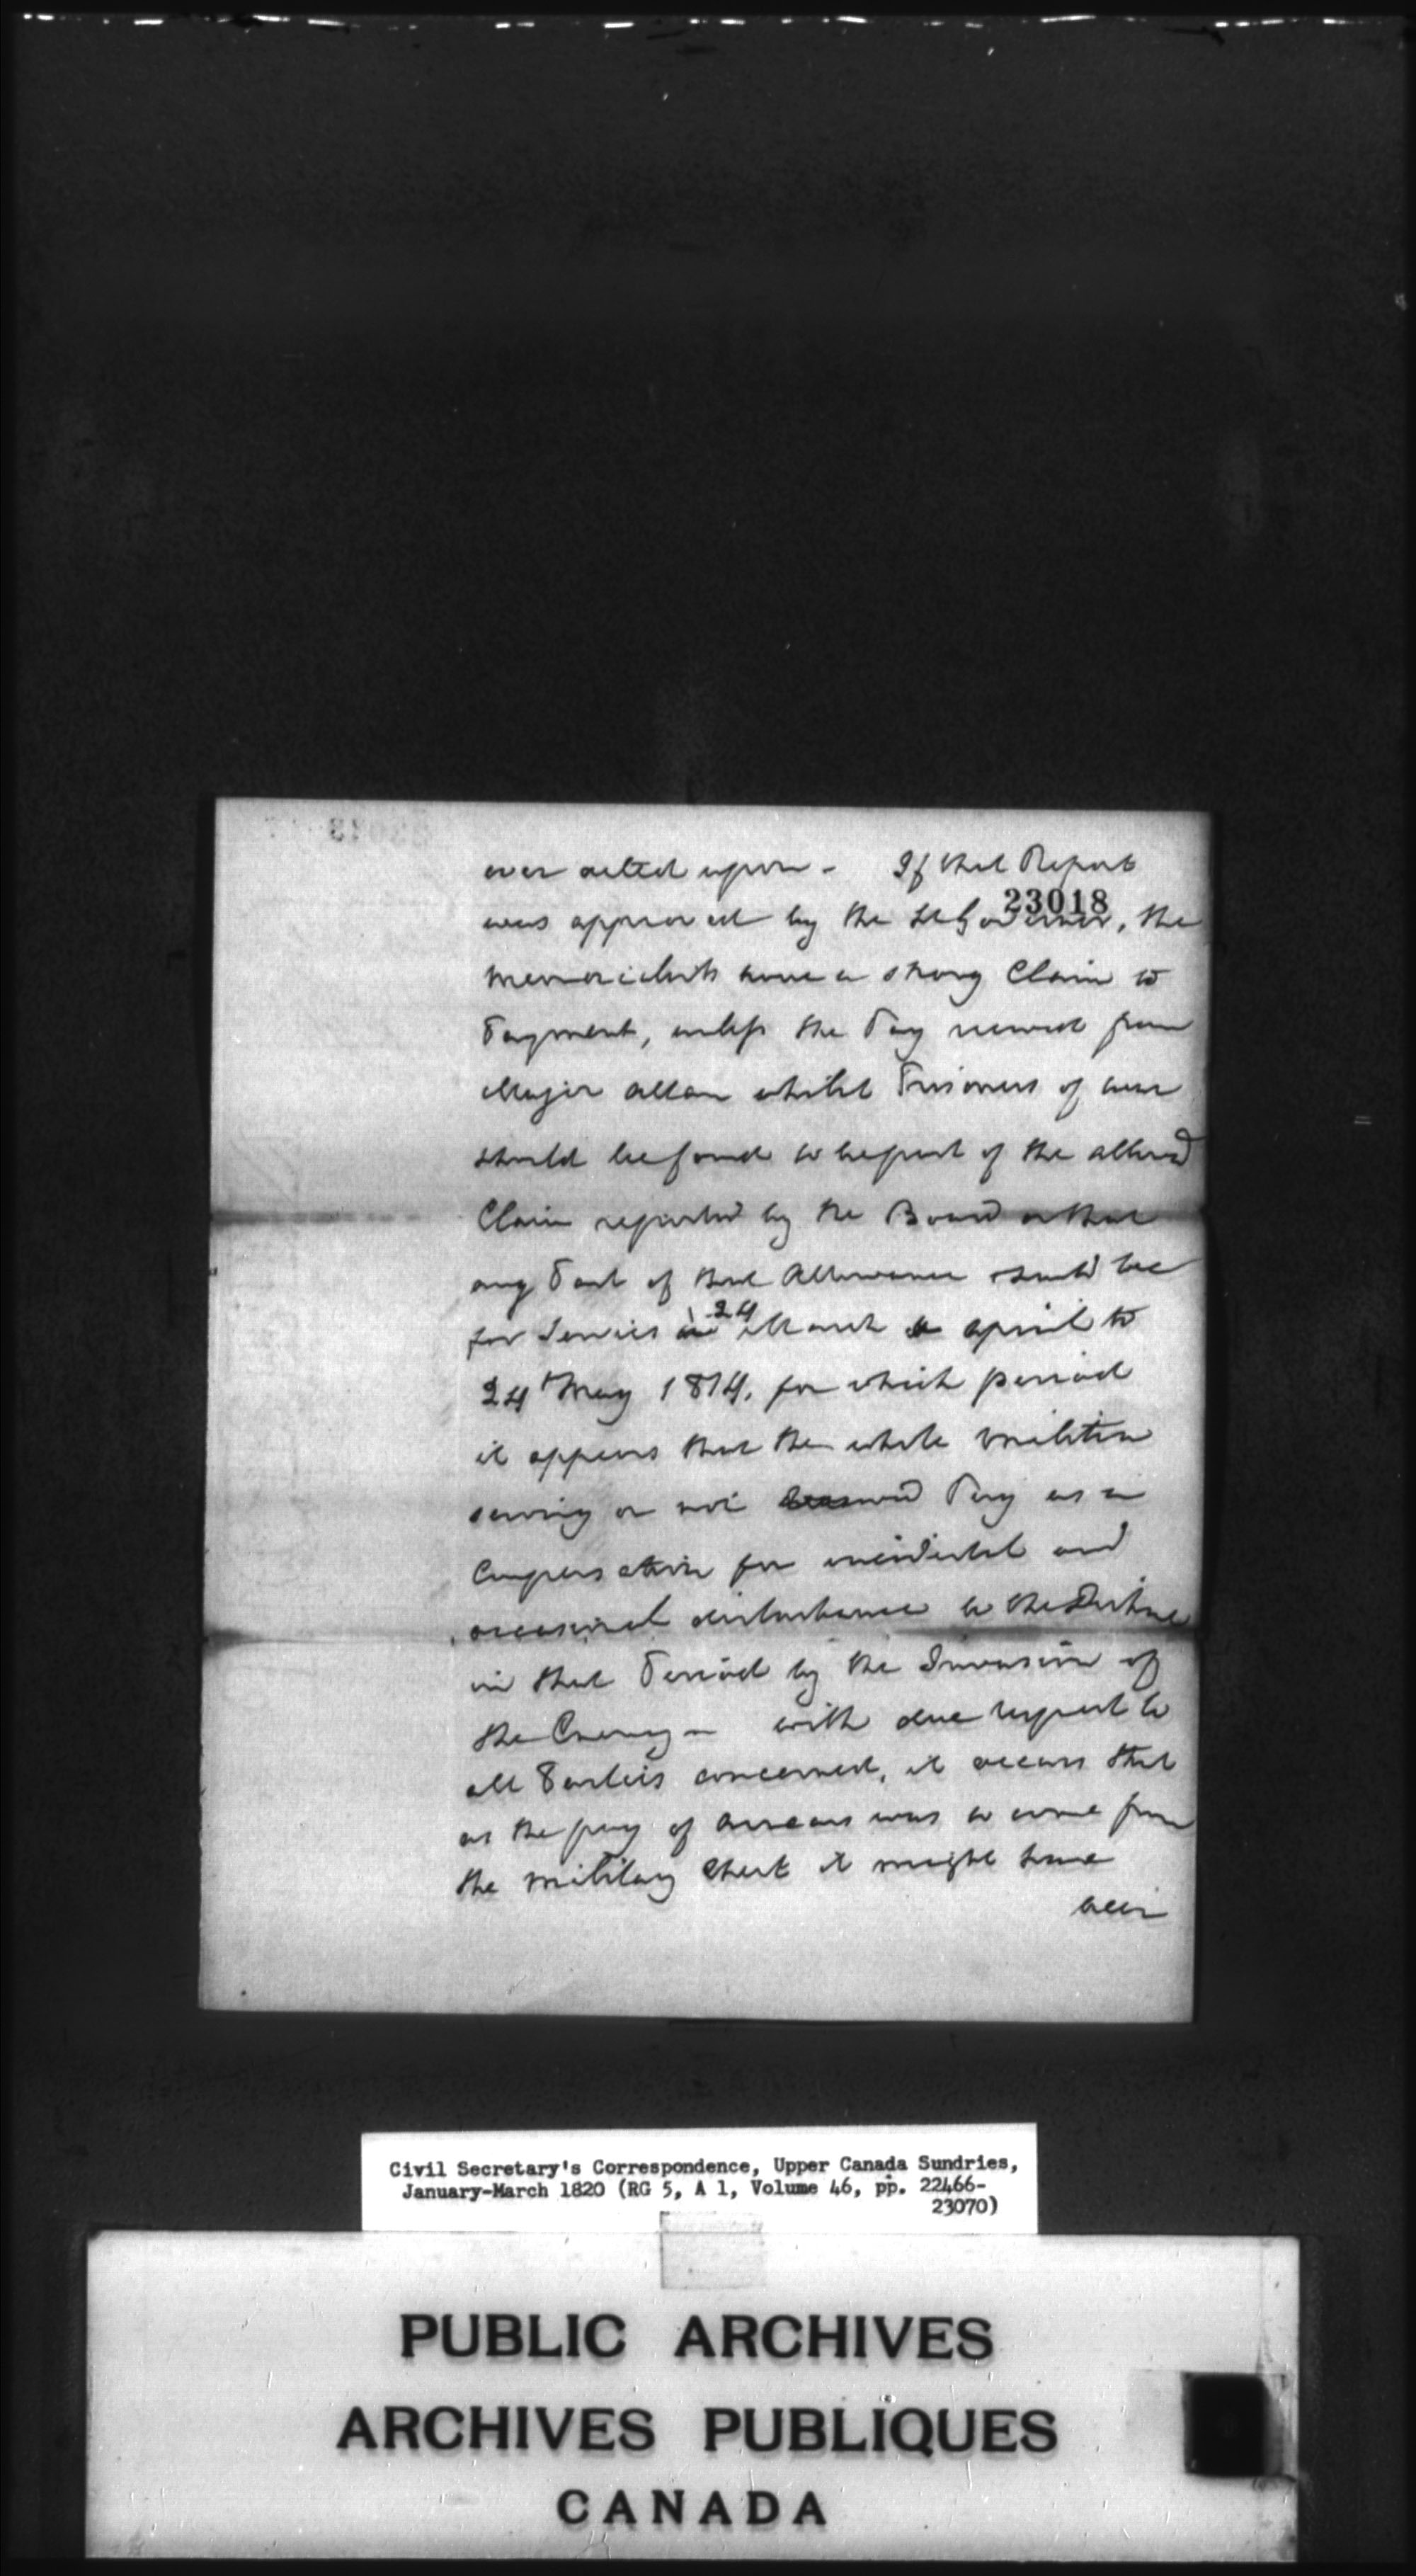 ever acted upon - If that Report
23018
was approved by the Lt Governor, the
Memorialists have a strong Claim to
Payment, unless the Pay received from
Major Allan whilst Prisoners of War
should be found to be part of the allowed
Claim reported by the Board or that
any Part of that Allowance should be
for Services in 24 March April to
24 May 1814, for which period
it appears that the whole Militia
serving or not Pay as a
Compensation for incidental and
occasional disturbance to the District
in that Period by the Invasion of
the Enemy - with due respect to
all Parties concerned, it occurs that
as the pay of Arrears was to come from
the Military Chest it might have
been
Civil Secretary's Correspondence, Upper Canada Sundries,
January-March 1820 (RG 5, A 1, Volume 46, pp. 22466-
23070)
PUBLIC ARCHIVES
ARCHIVES PUBLIQUES
CANADA